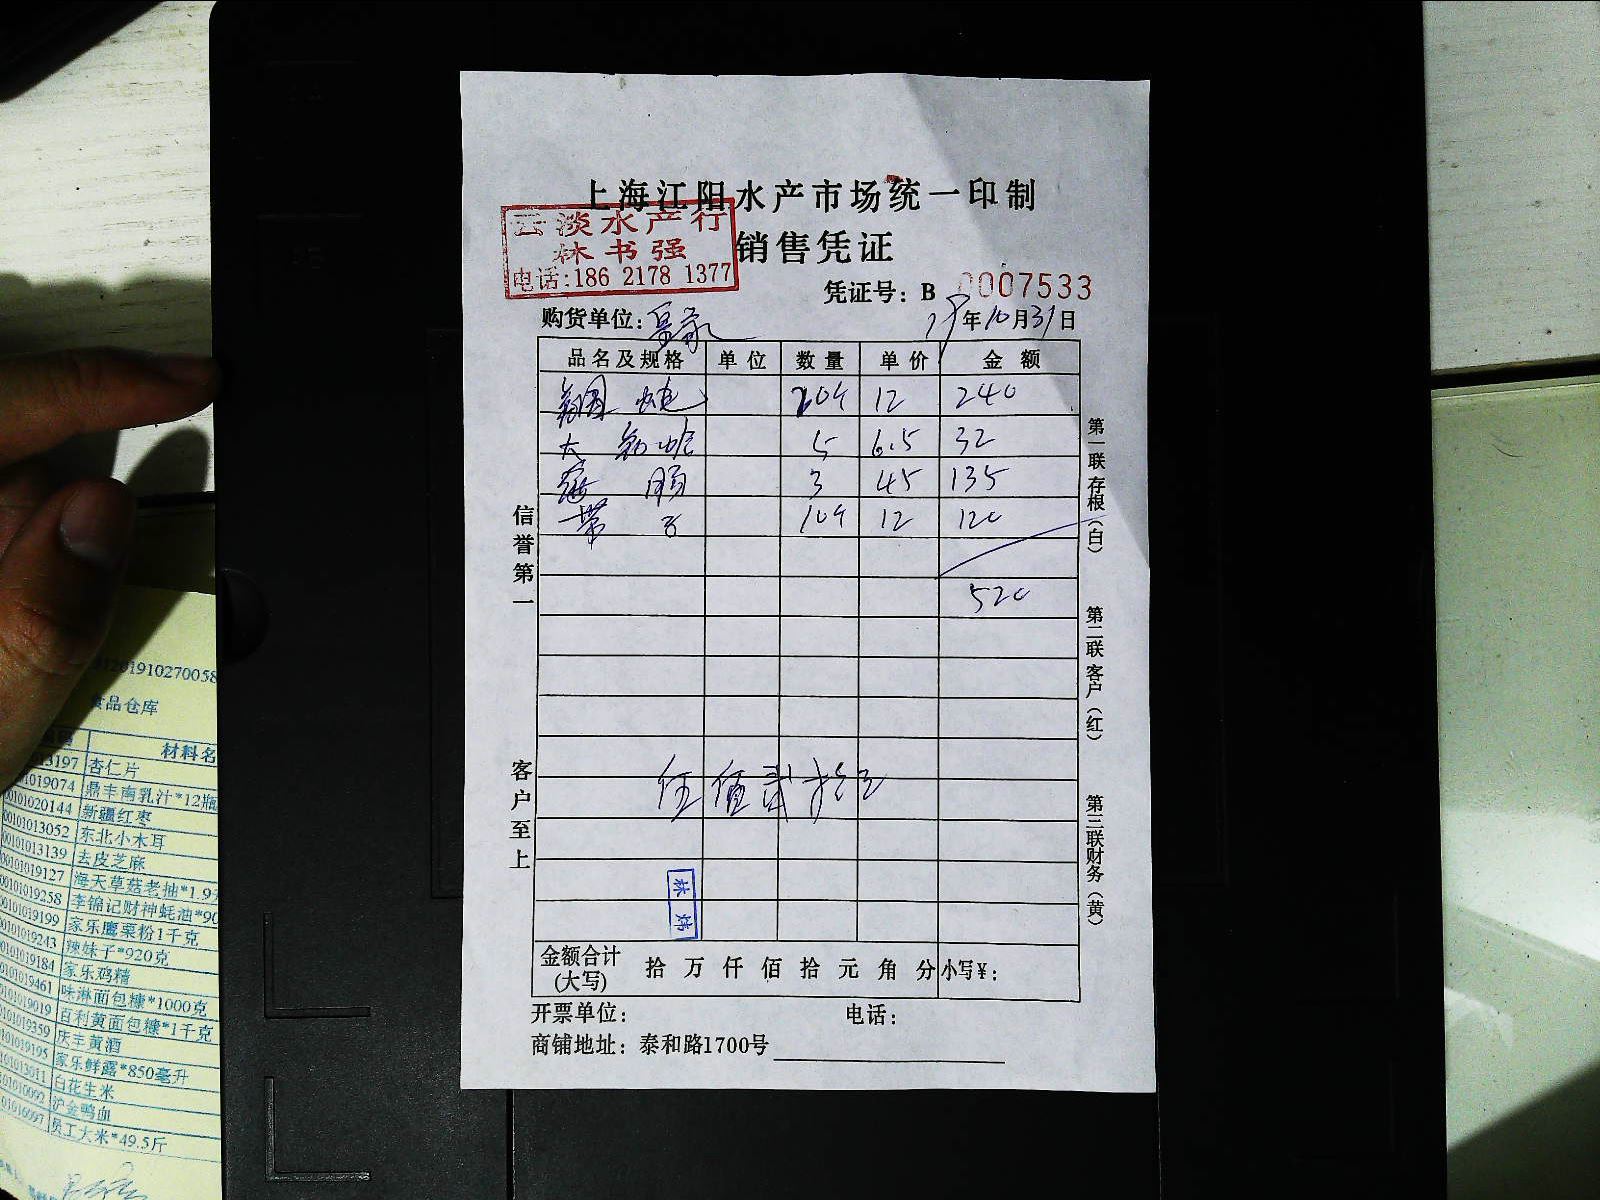 上海江阳水产市场统一印制
云淡水产行
林书强
电话:186 2178 1377
销售凭证
凭证号：B 0007533
购货单位：
19年10月31日
品名及规格 单位 数量 单价 金额
12 240
大 5 6.5 32
3 45 135
带子 10斤 12 120
520
伍佰贰拾元
信誉第一
客户至上
第一联存根(白)
第二联客户(红)
第三联财务(黄)
林炜
金额合计(大写) 拾 万 仟 佰 拾 元 角 分 小写￥：
开票单位： 电话：
商铺地址：泰和路1700号
201910270058
食品仓库
材料名
3197 杏仁片
01019074 鼎丰南乳汁*12瓶
00101020144 新疆红枣
00101013052 东北小木耳
00101013139 去皮芝麻
00101019127 海天草菇老抽*1.9
00101019258 李锦记财神蚝油*90
00101019199 家乐鹰粟粉1千克
00101019243 辣妹子*920克
00101019184 家乐鸡精
0101019461 味淋面包糠*1000克
00101019019 百利黄面包糠*1千克
00101019359 庆丰黄酒
00101019195 家乐鲜露*850毫升
00101013011 白花生米
00101010092 沪金鸭血
0101016097 员工大米*49.5斤